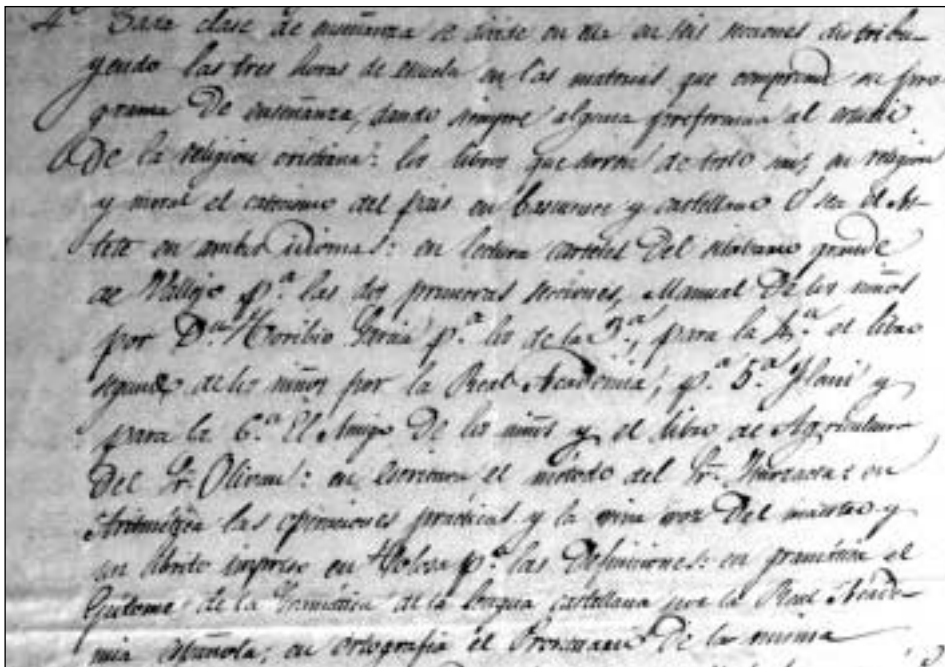 4.º Cada clase de enseñanza se divide en en seis secciones distribu-
yendo las tres horas de escuela en las materias que comprende su pro
grama de enseñanza, dando siempre alguna preferencia al estudio
de la religion cristiana: los libros que sirven de texto son, en religion
y moral el catecismo del pais en bascuence y castellano ó sea el As-
tete en ambos idiomas: en lectura carteles del silabario grande
de Vallejo p.ª las dos primeras secciones, Manual de los niños
por D.n Toribio Garcia p.ª los de la 3.ª, para la 4.ª el libro
segundo de los niños por la Real Academia, p.ª 5.ª y
para la 6.ª El Amigo de los niños y el libro de Agricultura
del Sr. Olivan: en escritura el método del Sr. Iturzaeta: en
Aritmética las operaciones practicas y la viva voz del maestro y
un librito impreso en Tolosa p.ª las definiciones: en gramática el
Epitome de la Gramática de la lengua castellana por la Real Acade-
mia Española; en ortografia el Prontuario de la misma